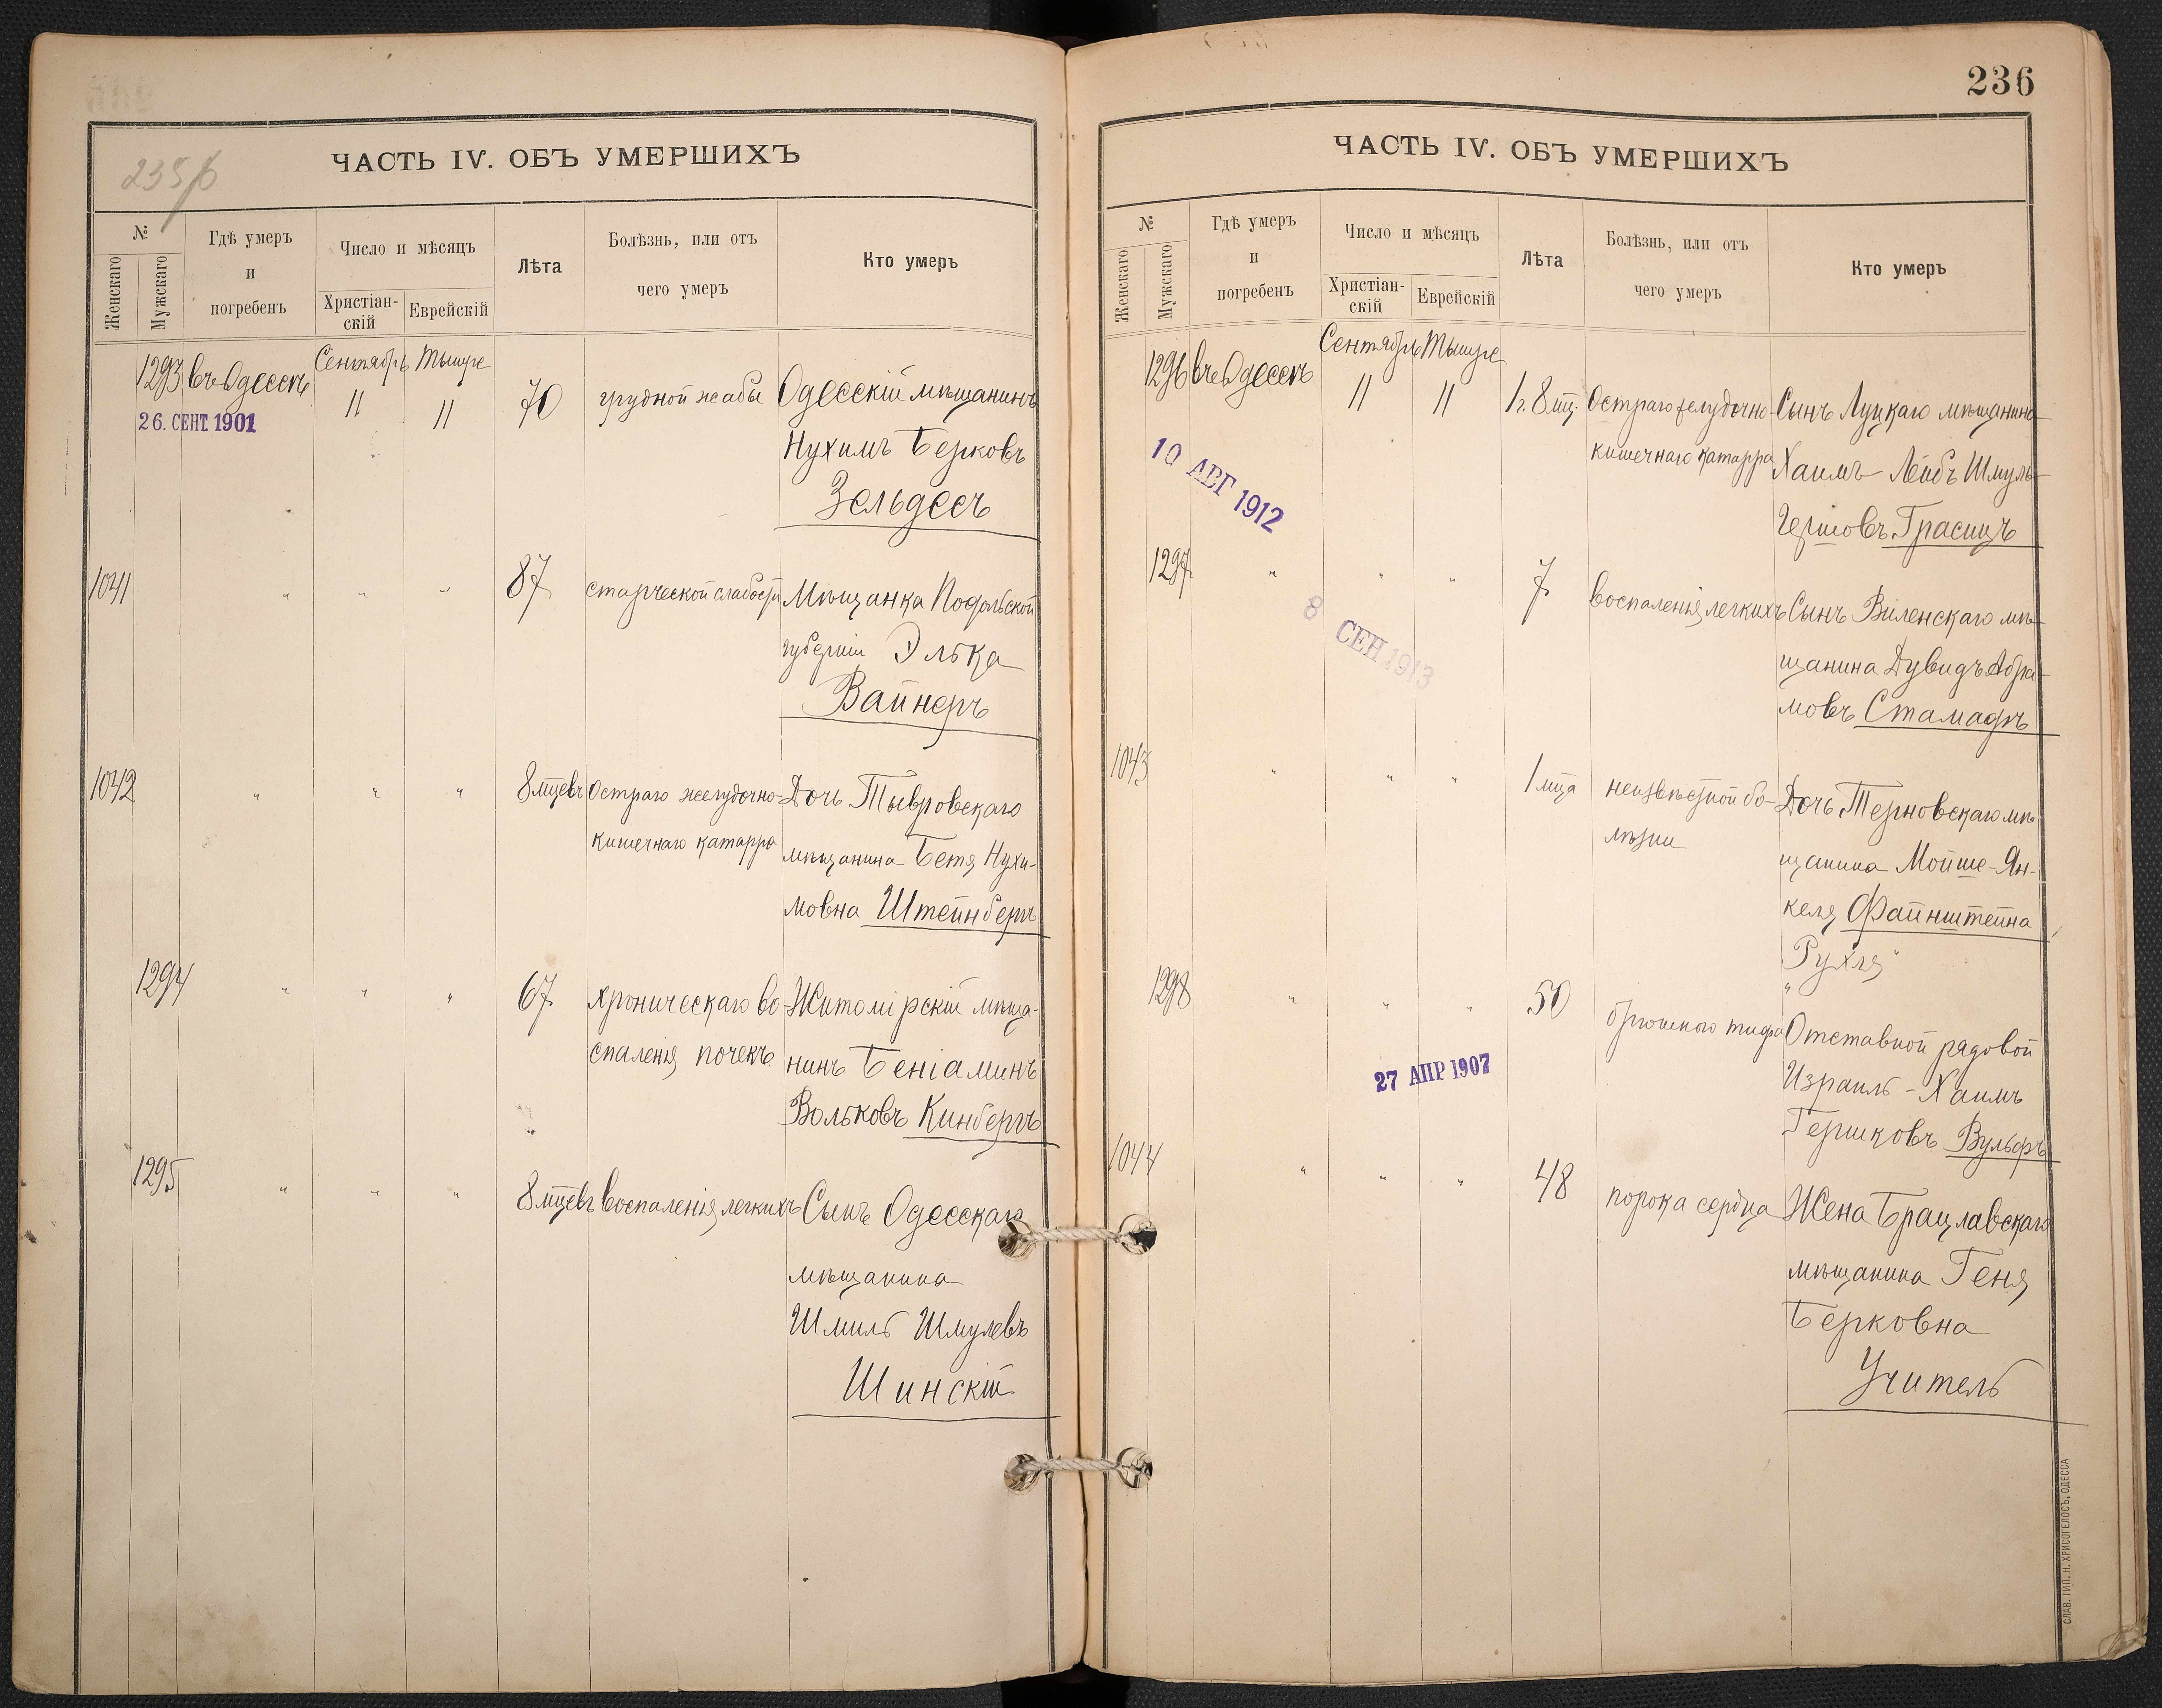 235б
ЧАСТЬ IV. ОБЪ УМЕРШИХЪ
№
Женскаго
Мужскаго
Гдѣ умеръ
и
погребенъ
Число и мѣсяцъ
Христіан-
скій
Еврейскій
Лѣта
Болѣзнь, или отъ
чего умеръ
Кто умеръ
Сентябрь Тышре
1293 въ Одессѣ 11 11 70 грудной жабы Одесскій мѣщанинъ
26. СЕНТ. 1901
Нухимъ Берковъ
Зельдесъ
1041 " " " 87 старческой слабости Мѣщанка Подольской
губерніи Элька
Вайнеръ
1042 " " " 8 мцевъ Остраго желудочно- Дочь Тывровскаго
кишечнаго катарра мѣщанина Бетя Нухи-
мовна Штейнбергъ
1294 " " " 67 хроническаго во- Житомірскій мѣща-
спаленія почекъ нинъ Беніаминъ
Вольковъ Кинбергъ
1295 " " " 8 мцевъ воспаленія легкихъ Сынъ Одесскаго
мѣщанина
Шмиль Шмулевъ
Шинскій
236
ЧАСТЬ IV. ОБЪ УМЕРШИХЪ
№
Женскаго
Мужскаго
Гдѣ умеръ
и
погребенъ
Число и мѣсяцъ
Христіан-
скій
Еврейскій
Лѣта
Болѣзнь, или отъ
чего умеръ
Кто умеръ
Сентябрь Тышре
1296 въ Одессѣ 11 11 1 г. 8 мц. Остраго желудочно- Сынъ Луцкаго мѣщанина
кишечнаго катарра Хаимъ-Лейбъ Шмуль-
10 АВГ 1912
Гершовъ Грасицъ
1297 " " " 7 воспаленія легкихъ Сынъ Виленскаго мѣ-
8 СЕН 1913
щанина Дувидъ Абра-
мовъ Стамадръ
1043 " " " 1 мца неизвѣстной бо- Дочь Терновскаго мѣ-
лѣзни щанина Мойше-Ян-
келя Файнштейна
Рухля
1298 " " " 50 брюшного тифа Отставной рядовой
27 АПР 1907
Израиль-Хаимъ
Гершковъ Вульфъ
1044 " " " 48 порока сердца Жена Брацлавскаго
мѣщанина Геня
Берковна
Учитель
СЛАВ. ТИП. Н. ХРИСОГЕЛОСЪ, ОДЕССА